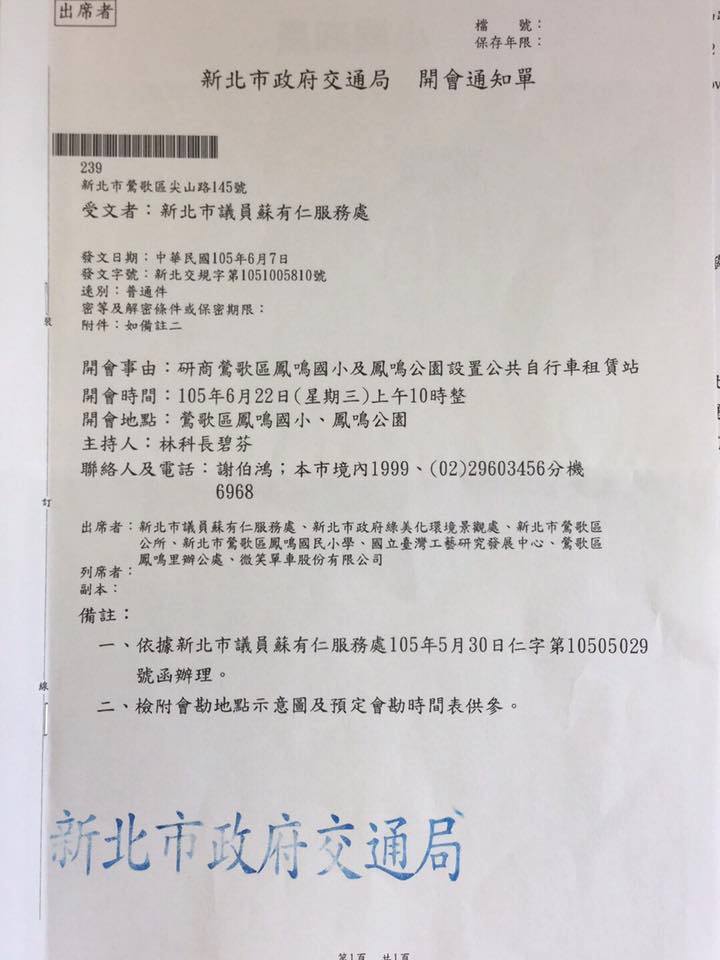 出席者
檔　　號：
保存年限：
新北市政府交通局　開會通知單
239
新北市鶯歌區尖山路145號
受文者：新北市議員蘇有仁服務處
發文日期：中華民國105年6月7日
發文字號：新北交規字第1051005810號
速別：普通件
密等及解密條件或保密期限：
附件：如備註二
裝
開會事由：研商鶯歌區鳳鳴國小及鳳鳴公園設置公共自行車租賃站
開會時間：105年6月22日(星期三)上午10時整
開會地點：鶯歌區鳳鳴國小、鳳鳴公園
主持人：林科長碧芬
聯絡人及電話：謝伯鴻；本市境內1999、(02)29603456分機
6968
訂
出席者：新北市議員蘇有仁服務處、新北市政府綠美化環境景觀處、新北市鶯歌區
公所、新北市鶯歌區鳳鳴國民小學、國立臺灣工藝研究發展中心、鶯歌區
鳳鳴里辦公處、微笑單車股份有限公司
列席者：
副本：
備註：
一、依據新北市議員蘇有仁服務處105年5月30日仁字第10505029
號函辦理。
線
二、檢附會勘地點示意圖及預定會勘時間表供參。
新北市政府交通局
第1頁　共1頁